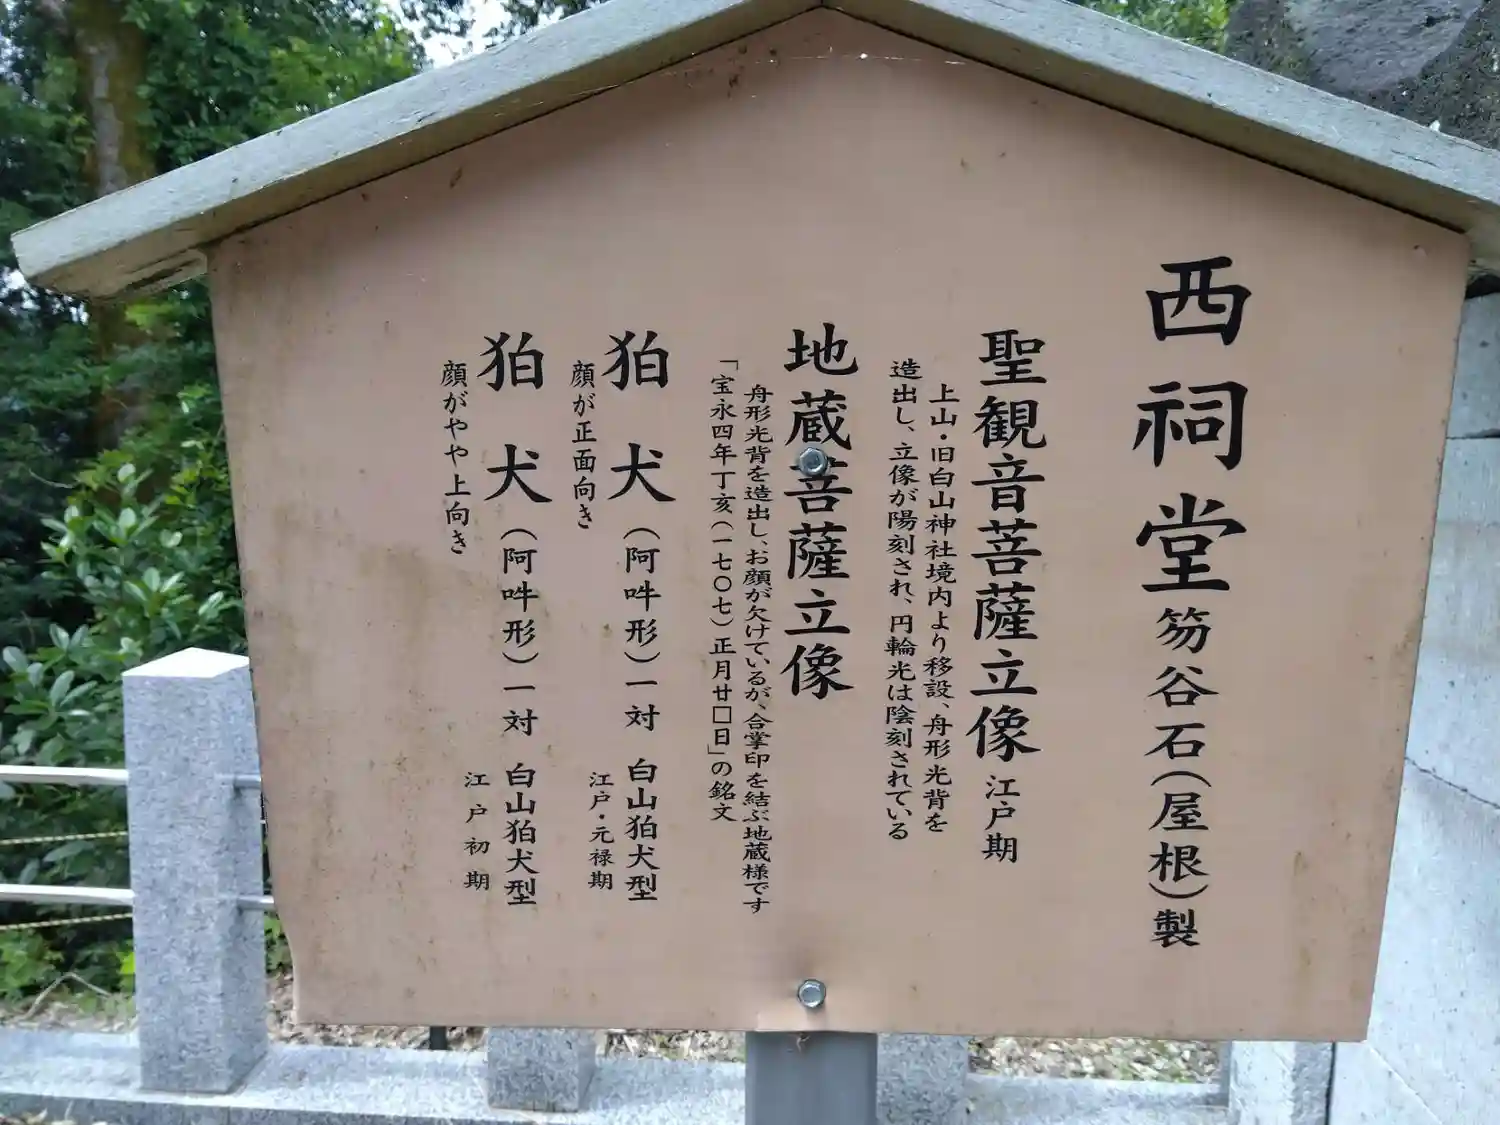 西祠堂 笏谷石(屋根)製
聖観音菩薩立像 江戸期
上山・旧白山神社境内より移設、舟形光背を
造出し、立像が陽刻され、円輪光は陰刻されている
地蔵菩薩立像
舟形光背を造出し、お顔が欠けているが、合掌印を結ぶ地蔵様です
「宝永四年丁亥(一七〇七)正月廿□日」の銘文
狛犬(阿吽形)一対 白山狛犬型
顔が正面向き 江戸・元禄期
狛犬(阿吽形)一対 白山狛犬型
顔がやや上向き 江戸初期